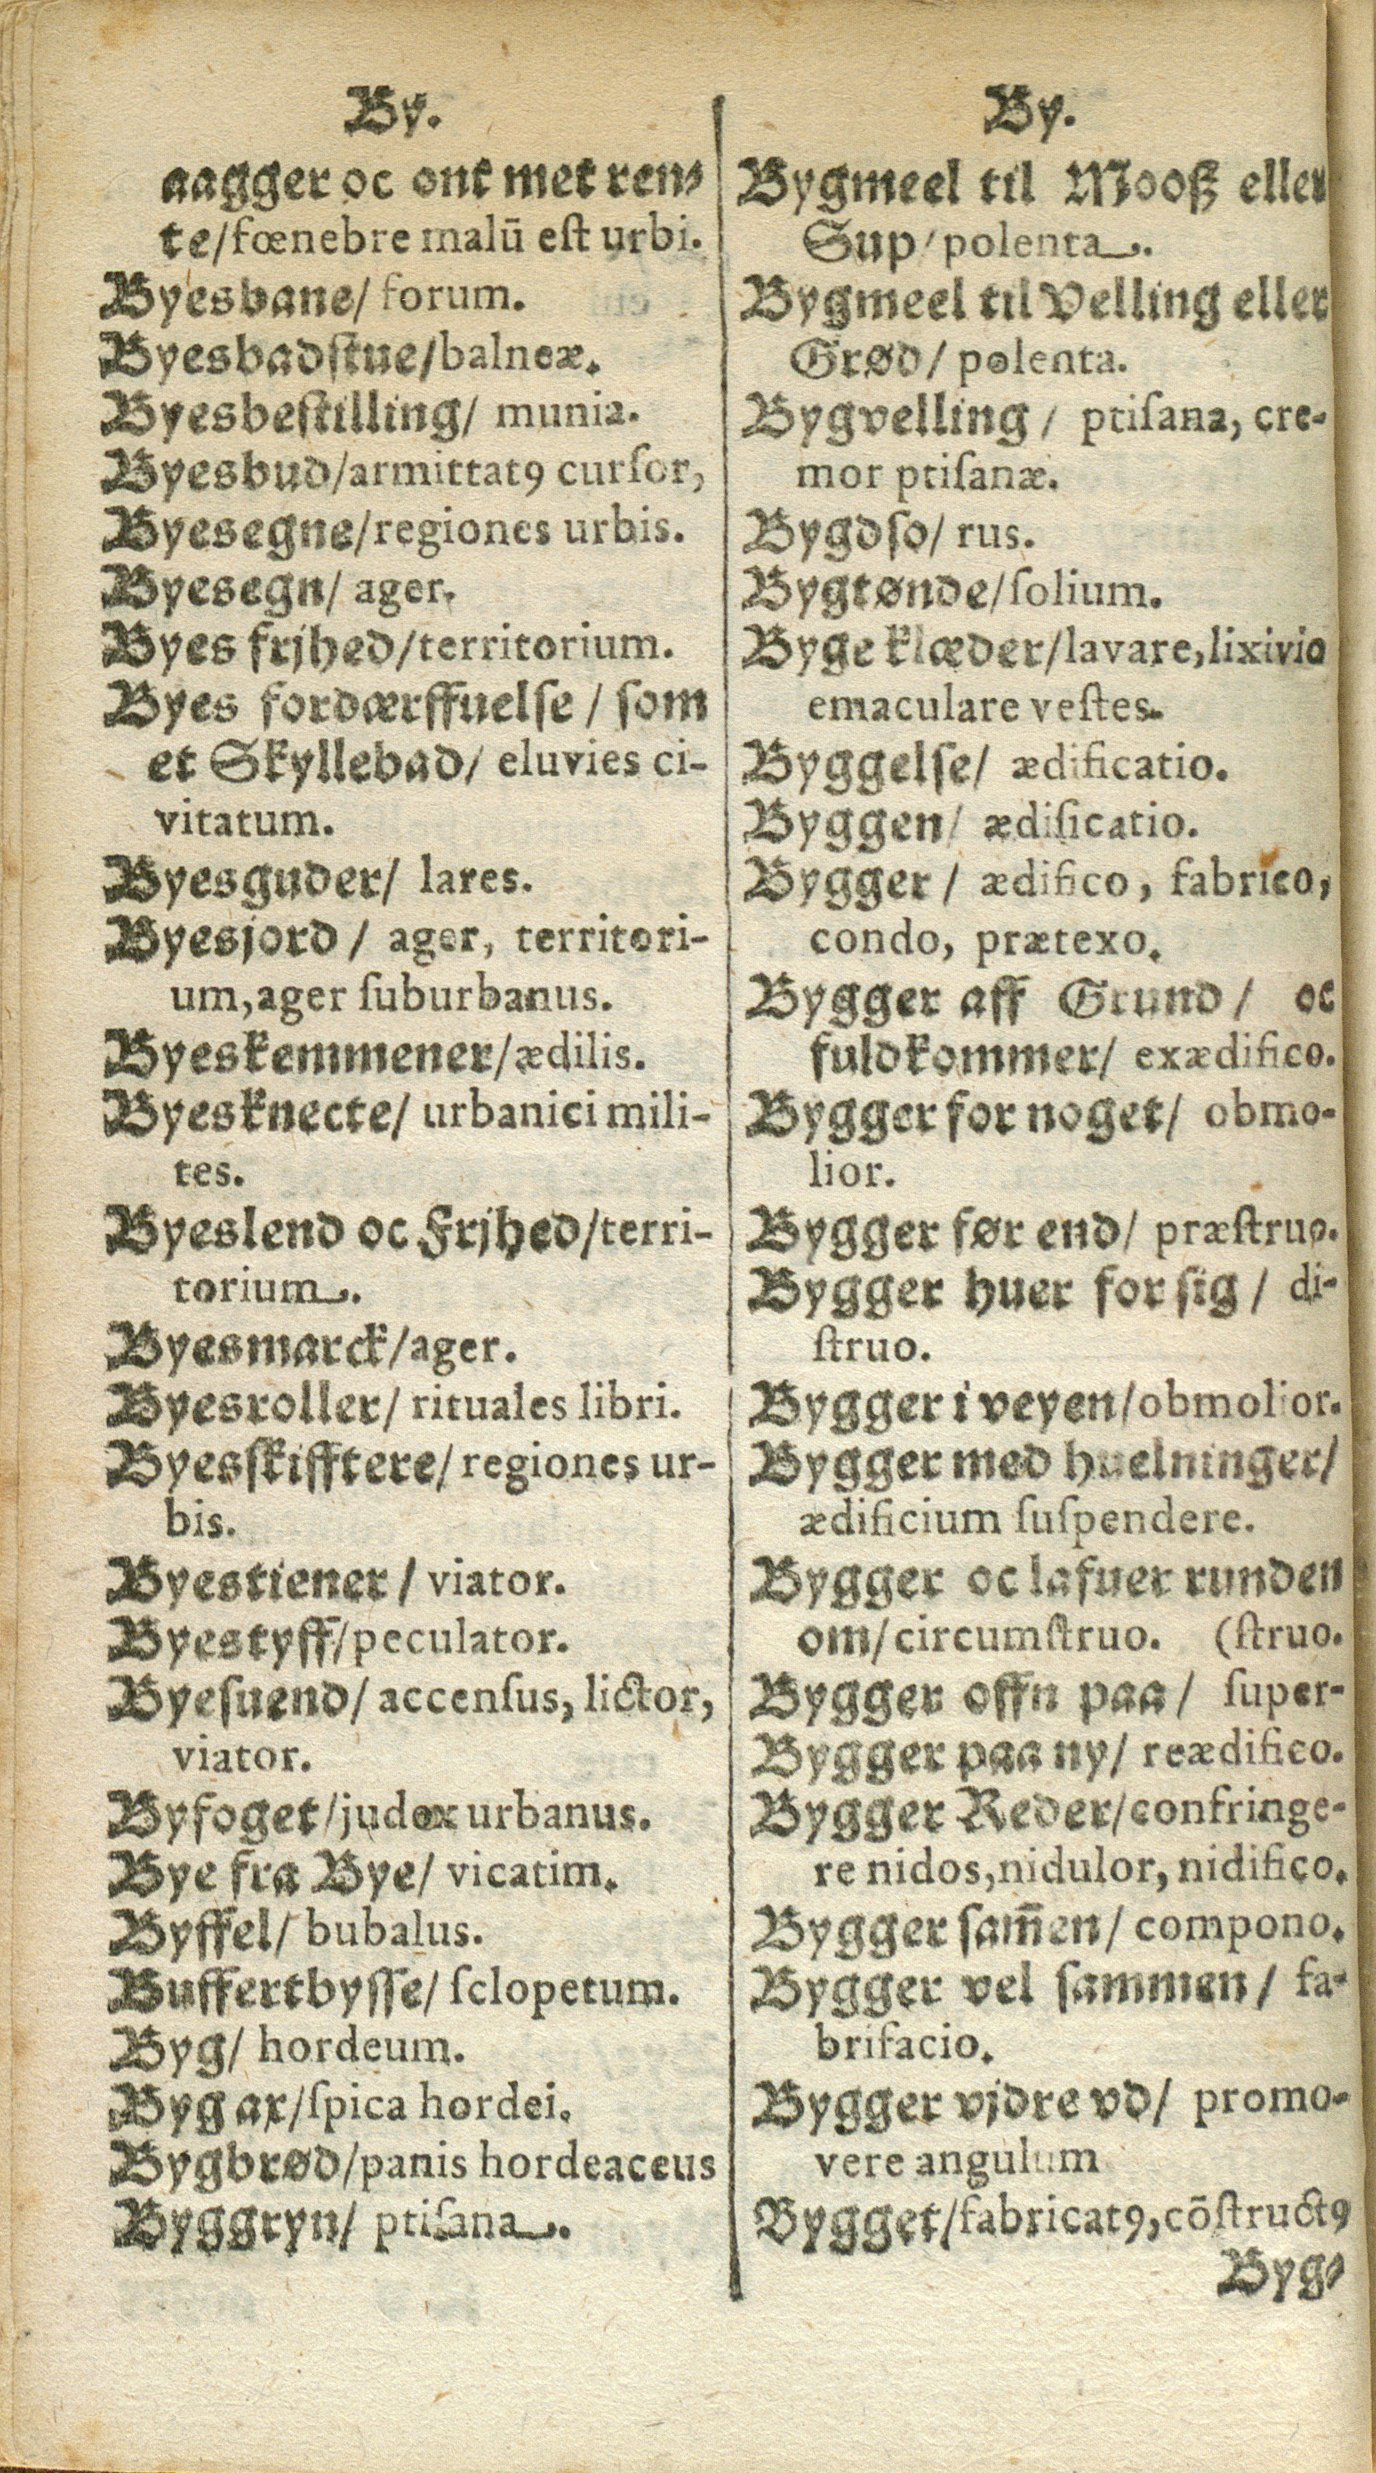 By.
aagger oc ont met ren⸗
te/fœnebre malū eſt urbi.
Byesbane/ forum.
Byesbadſtue/balneæ.
Byesbeſtilling/ munia.
Byesbud/armittatꝯ curſor,
Byesegne/regiones urbis.
Byesegn/ ager.
Byes frjhed/territorium.
Byes fordærffuelſe / ſom
et Skyllebad/ eluvies ci-
vitatum.
Byesguder/ lares.
Byesjord / ager, territori-
um,ager ſuburbanus.
Byeskemmener/ædilis.
Byesknecte/ urbanici mili-
tes.
Byeslend oc Frjhed/terri-
torium.
Byesmarck/ager.
Byesroller/ rituales libri.
Byesſkifftere/ regiones ur-
bis.
Byestiener / viator.
Byestyff/peculator.
Byeſuend/ accenſus, lictor,
viator.
Byfoget/judex urbanus.
Bye fra Bye/ vicatim.
Byffel/ bubalus.
Buffertbyſſe/ ſclopetum.
Byg/ hordeum.
Byg ax/ſpica hordei.
Bygbrød/panis hordeaceus
Byggryn/ ptiſana.
By.
Bygmeel til Mooß eller
Sup/polenta.
Bygmeel til Velling eller
Grød/ polenta.
Bygvelling / ptiſana, cre-
mor ptiſanæ.
Bygdſo/ rus.
Bygtønde/ſolium.
Byge klæder/lavare,lixivio
emaculare veſtes.
Byggelſe/ ædificatio.
Byggen/ ædificatio.
Bygger / ædifico, fabrico,
condo, prætexo.
Bygger aff Grund / oc
fuldkommer/ exædifico.
Bygger for noget/ obmo-
lior.
Bygger før end/ præſtruo.
Bygger huer for ſig / di-
ſtruo.
Bygger i veyen/obmolior.
Bygger med huelninger/
ædificium ſuſpendere.
Bygger oc lafuer runden
om/circumſtruo. (ſtruo.
Bygger offn paa / ſuper-
Bygger paa ny/ reædifico.
Bygger Reder/confringe-
re nidos,nidulor, nidifico.
Bygger ſam̃en/ compono.
Bygger vel ſammen / fa-
brifacio.
Bygger vjdre vd/ promo-
vere angulum
Bygget/fabricatꝯ,cōſtructꝯ
Byg⸗